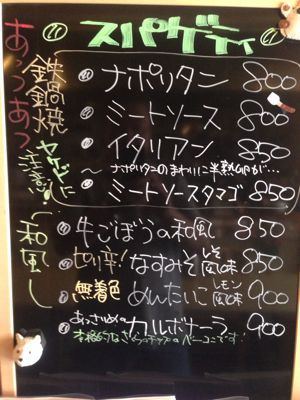 スパゲティ
あつあつ
鉄鍋焼
ヤケドに注意!
ナポリタン 800
ミートソース 800
イタリアン 850
~ナポリタンのまわりに半熟卵が…
ミートソースタマゴ 850
和風し
牛ごぼうの和風 850
ピリ辛!なすみそ しそ風味 850
無着色 めんたいこ レモン風味 900
あっさりめの カルボナーラ 900
本格的なさくらのチップのベーコンです!